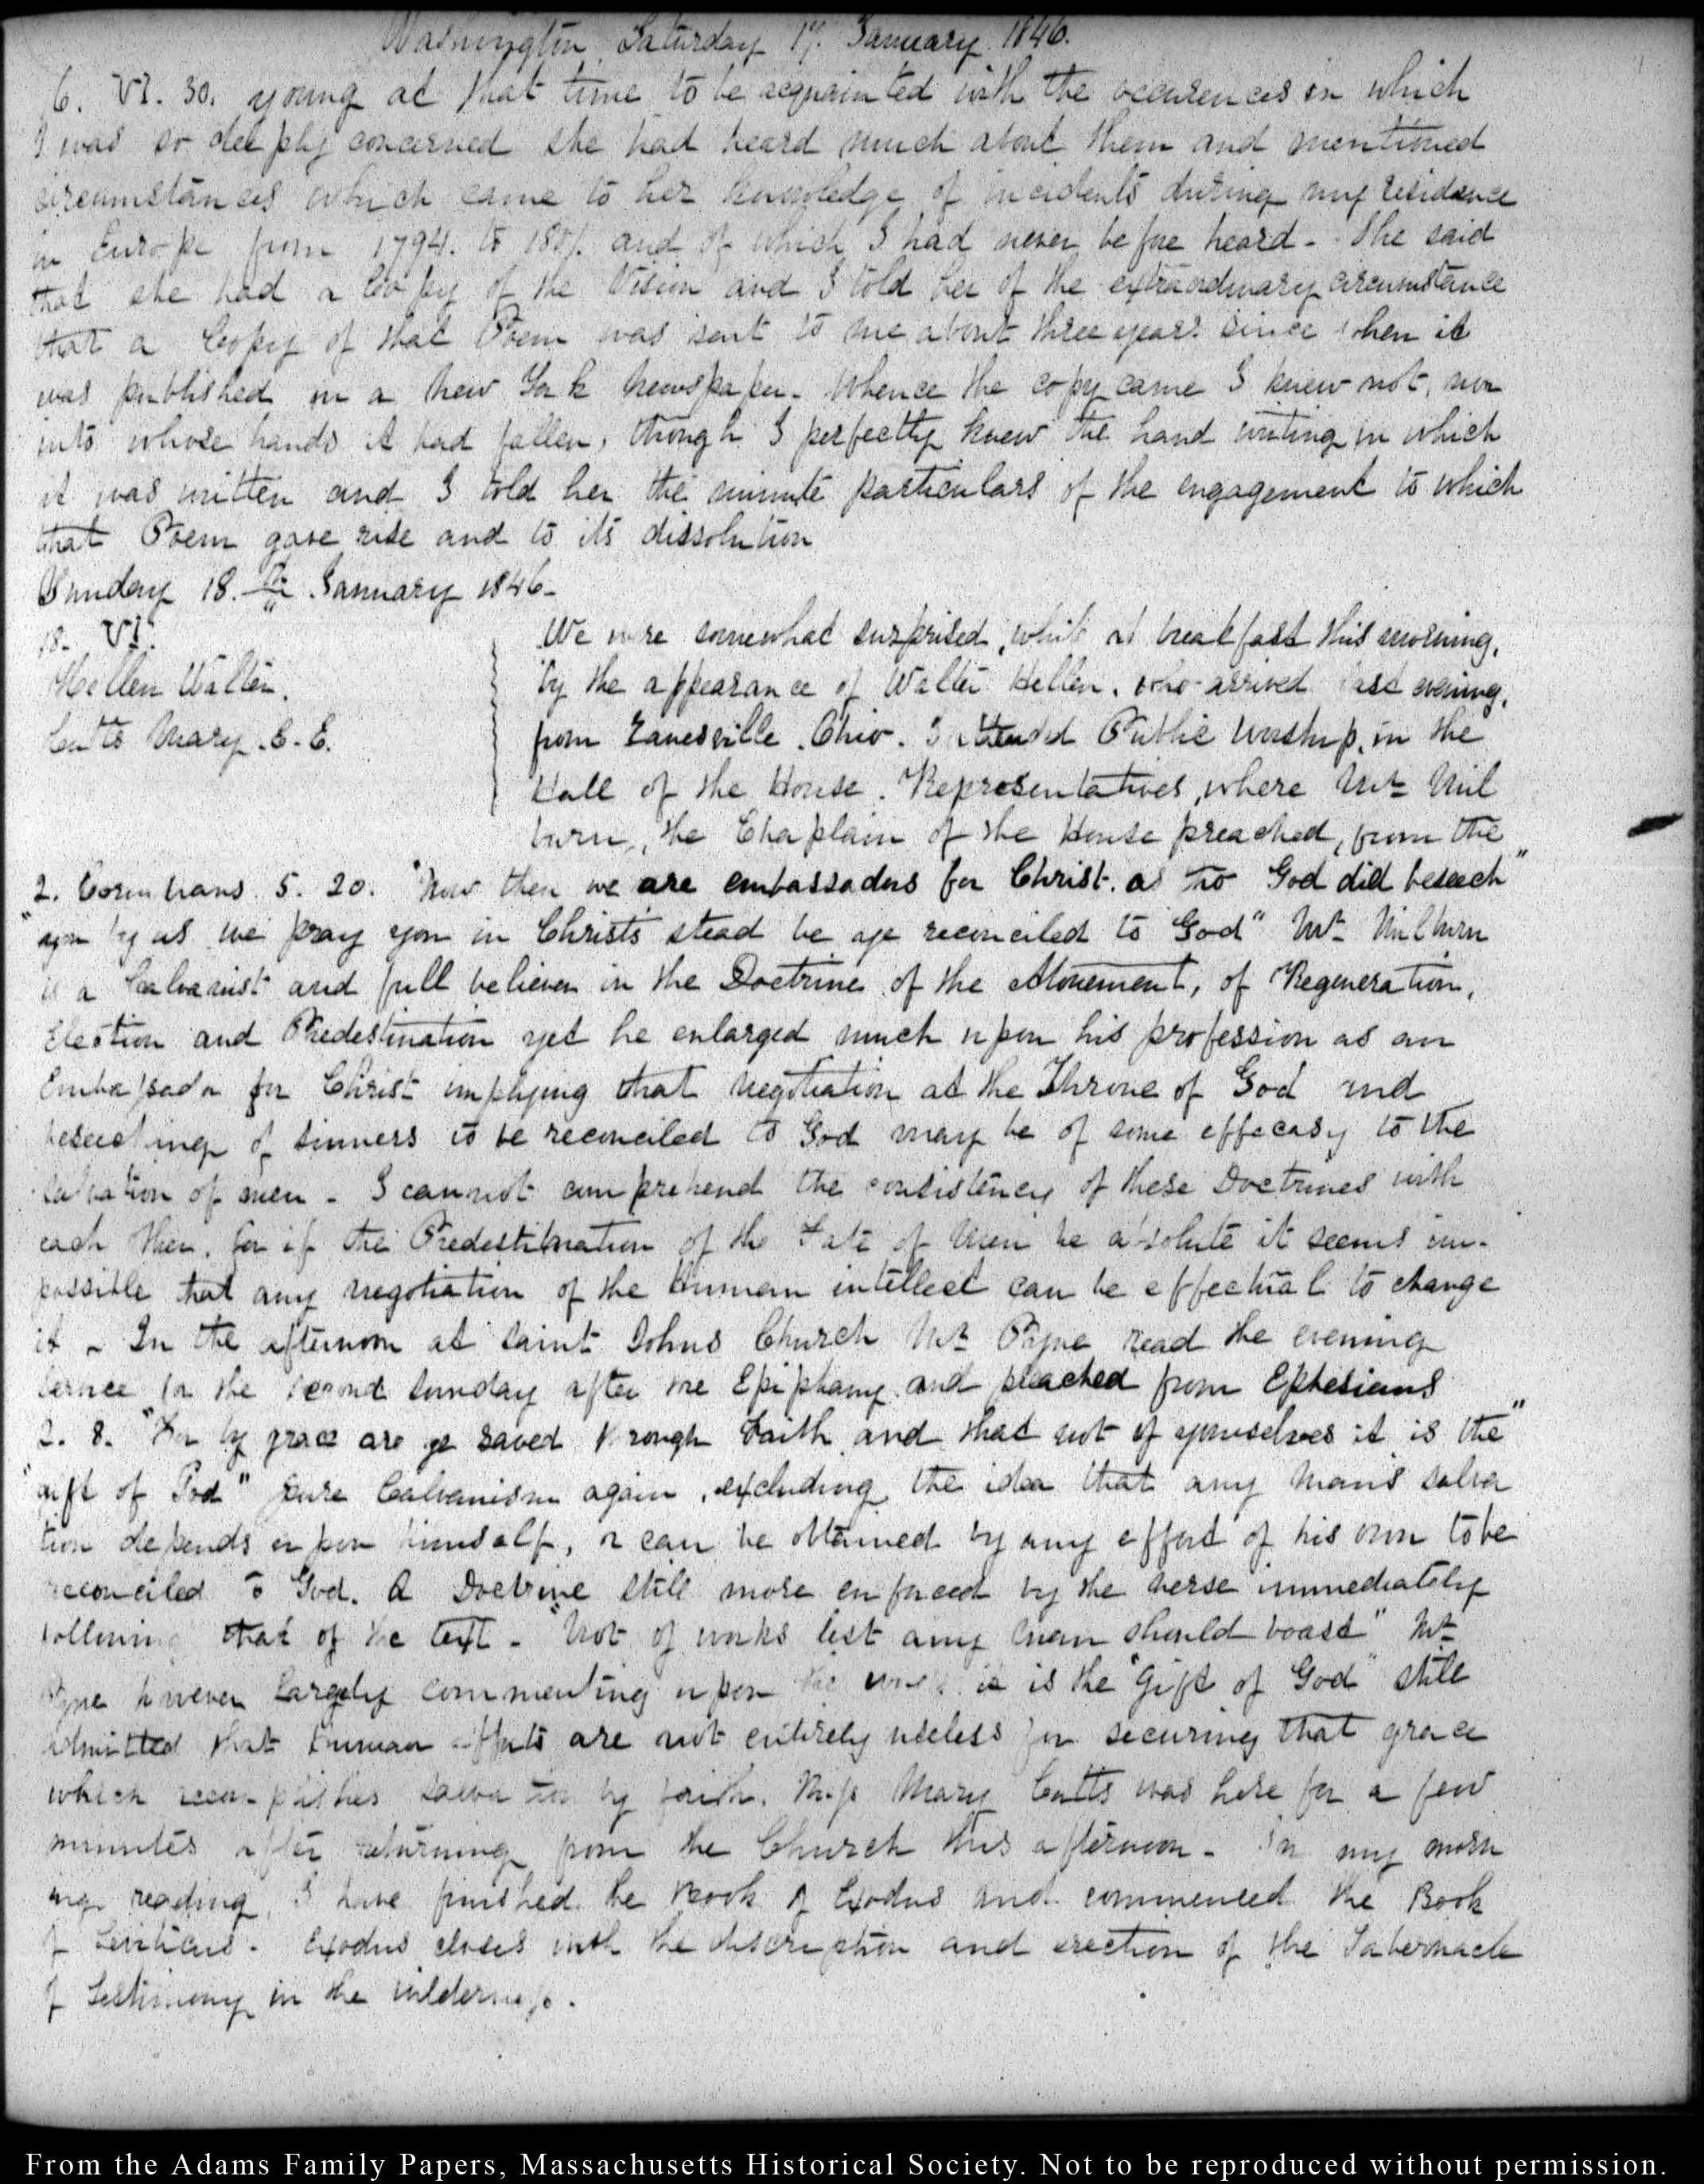 Washington Saturday 17. January 1846.
6. VI. 30. young at that time to be acquainted with the occurences in which
I was so deeply concerned she had heard much about them and mentioned
circumstances which came to her knowledge of incidents during my residence
in Europe from 1794. to 1801. and of which I had never before heard - She said
that she had a Copy of the Vision and I told her of the extraordinary circumstance
that a Copy of that Poem was sent to me about three years since when it
was published in a New York Newspaper - Whence the copy came I knew not, nor
into whose hands it had fallen, though I perfectly knew the hand writing in which
it was written and I told her the minute particulars of the engagement to which
that Poem gave rise and to its dissolution
Sunday 18.th January 1846 -
18. VI.
Hellen Walter.
Cutts Mary. E. E.
We were somewhat surprised, while at breakfast this morning,
by the appearance of Walter Hellen, who arrived last evening,
from Zanesville, Ohio. I attended Public Worship, in the
Hall of the House. Representatives, where Mr Mil
burn, the Chaplain of the House preached, from the
2. Corinthians 5. 20. "Now then we are embassadors for Christ. as tho God did beseech"
"you by us we pray you in Christs stead be ye reconciled to God" Mr Milburn
is a Calvanist and full believer in the Doctrine of the Atonement, of Regeneration,
Election and Predestination yet he enlarged much upon his profession as an
Embassador for Christ implying that negotiation at the Throne of God and
beseeching of sinners to be reconciled to God may be of some effecasy to the
salvation of men - I cannot comprehend the consistency of these Doctrines with
each other, for if the Predestination of the Fate of Men be absolute it seems im-
possible that any negotiation of the Human intellect can be effectual to change
it - In the afternoon at Saint Johns Church Mr Pyne read the evening
service for the second sunday after the Epiphany and preached from Ephesians
2. 8. "For by grace are ye saved through Faith and that not of yourselves it is the"
"gift of God" pure Calvanism again, excluding the idea that any Man's salva
tion depends upon himself, or can be obtained by any effort of his own to be
reconciled to God. A Doctrine still more enforced by the verse immediately
following that of the text - "Not of works lest any man should boast" Mr
Pyne however largely commenting upon the words it is the "Gift of God" still
admitted that human efforts are not entirely useless for securing that grace
which accomplishes salvation by faith. Miss Mary Cutts was here for a few
minutes after returning from the Church this afternoon - In my morn
ing reading, I have finished the Book of Exodus and commenced the Book
of Leviticus. Exodus closes with the discription and erection of the Tabernacle
of Testimony in the wilderness.
From the Adams Family Papers, Massachusetts Historical Society. Not to be reproduced without permission.